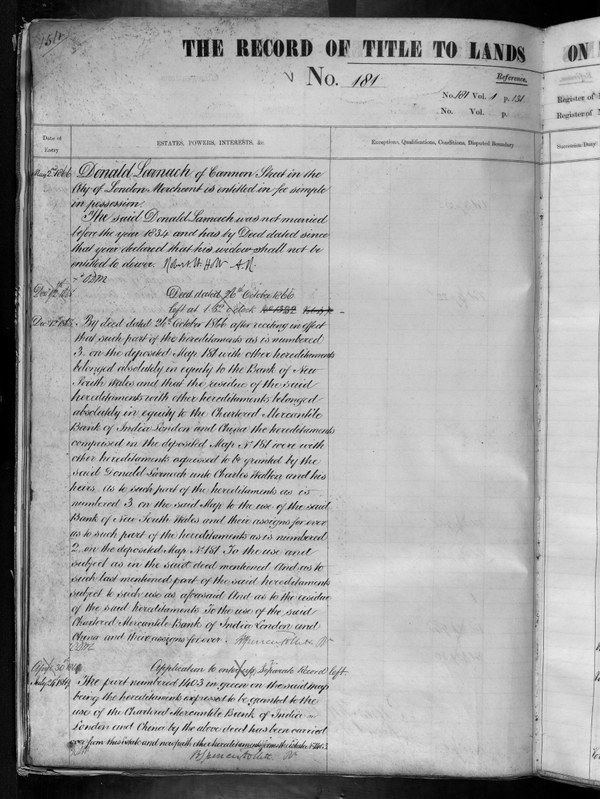 THE RECORD OF TITLE TO LANDS
ON
No. 181
Reference.
No. 181 Vol. 1 p. 131
No. Vol. p.
Register of
Register of
Date of
Entry
ESTATES, POWERS, INTERESTS, &c.
Exceptions, Qualifications, Conditions, Disputed Boundary
Succession Duty
Donald Larnach of Cannon Street in the
City of London Merchant is entitled in fee simple
in possession.
The said Donald Larnach was not married
before the year 1834 and has by Deed dated since
that year declared that his widow shall not be
entitled to dower.
Deed dated 26th October 1866
left at 1 o'clock
By deed dated 26th October 1866 after reciting in effect
that such part of the hereditaments as is numbered
3. on the deposited Map 181 with other hereditaments
belonged absolutely in equity to the Bank of New
South Wales and that the residue of the said
hereditaments with other hereditaments belonged
absolutely in equity to the Chartered Mercantile
Bank of India London and China the hereditaments
comprised in the deposited Map No 181 were with
other hereditaments expressed to be granted by the
said Donald Larnach unto Charles Walton and his
heirs. As to such part of the hereditaments as is
numbered 3 on the said Map to the use of the said
Bank of New South Wales and their assigns for ever
as to such part of the hereditaments as is numbered
2. on the deposited Map No 181 To the use and
subject as in the said deed mentioned And as to
such last mentioned part of the said hereditaments
subject to such use as aforesaid And as to the residue
of the said hereditaments To the use of the said
Chartered Mercantile Bank of India London and
China and their assigns for ever.
Application to enter up Separate Record left
The part numbered 1403 in green on the said map
being the hereditaments expressed to be granted to the
use of the Chartered Mercantile Bank of India
London and China by the above deed has been carried
over from this estate and now with other hereditaments forms the estate